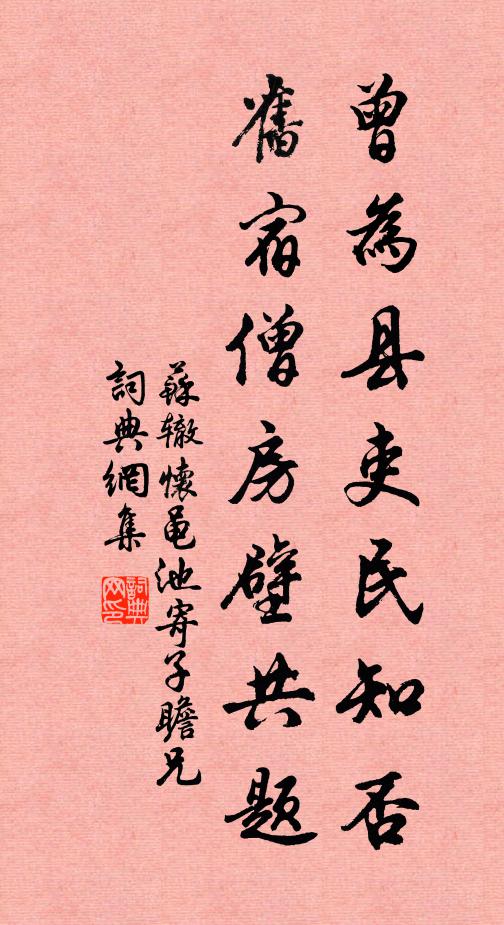 曾為县吏民知否
舊宿僧房壁共题
蘇辙懷黾池寄子瞻兄
詞典網集
詞典网印